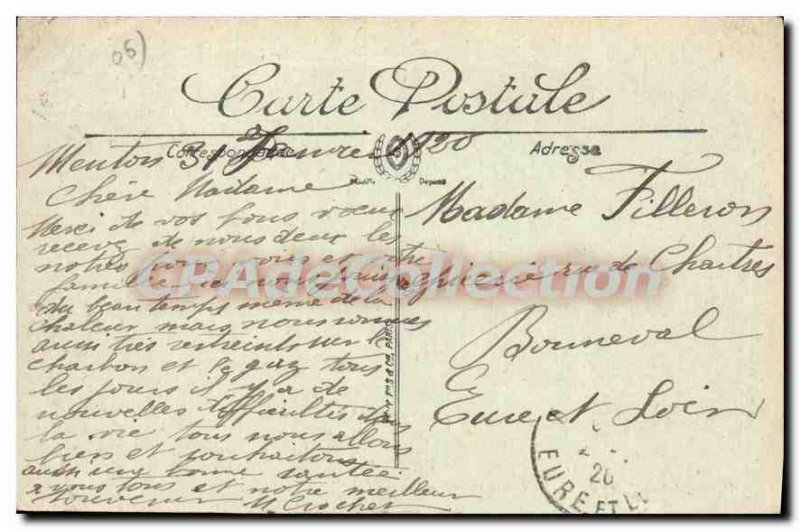 06)
Carte Postale
Correspondance
Adresse
Menton 31 Janvier 1920
Chère Madame
Merci de vos bons voeux
receve de nous deux les
notres pour vous et votre
famille ici nous
du beau temps même de la
chaleur mais nous sommes
aussi très restreints sur le
charbon et le gaz tous
les jours il y a de
nouvelles difficultés dans
la vie tous nous allons
bien et souhaitons
aussi une bonne santée
a vous tous et notre meilleur
souvenir M. Crochet
Madame Filleron
épicière rue de Chartres
Bonneval
Eure et Loir
CPAdeCollection
Modèle Déposé
FILS & Cie, PARIS
20
EURE ET L